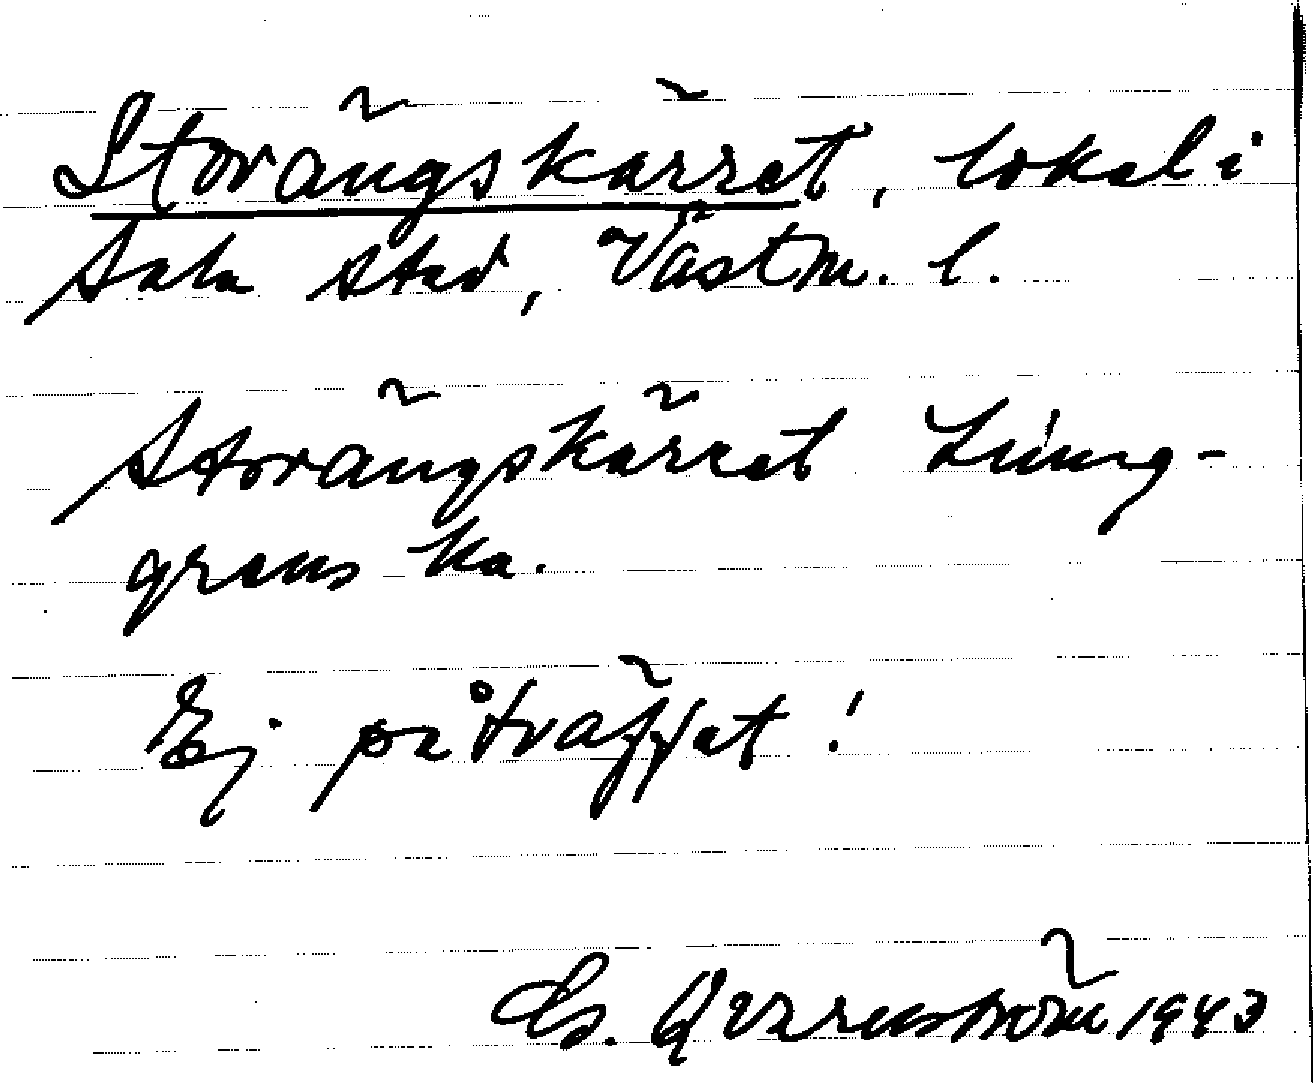 Storängskärret, lokal i
Sala stad, Västm. l.
Storängskärret Ljung-
grens ka.
Ej påträffat!
Qvarnström 1943